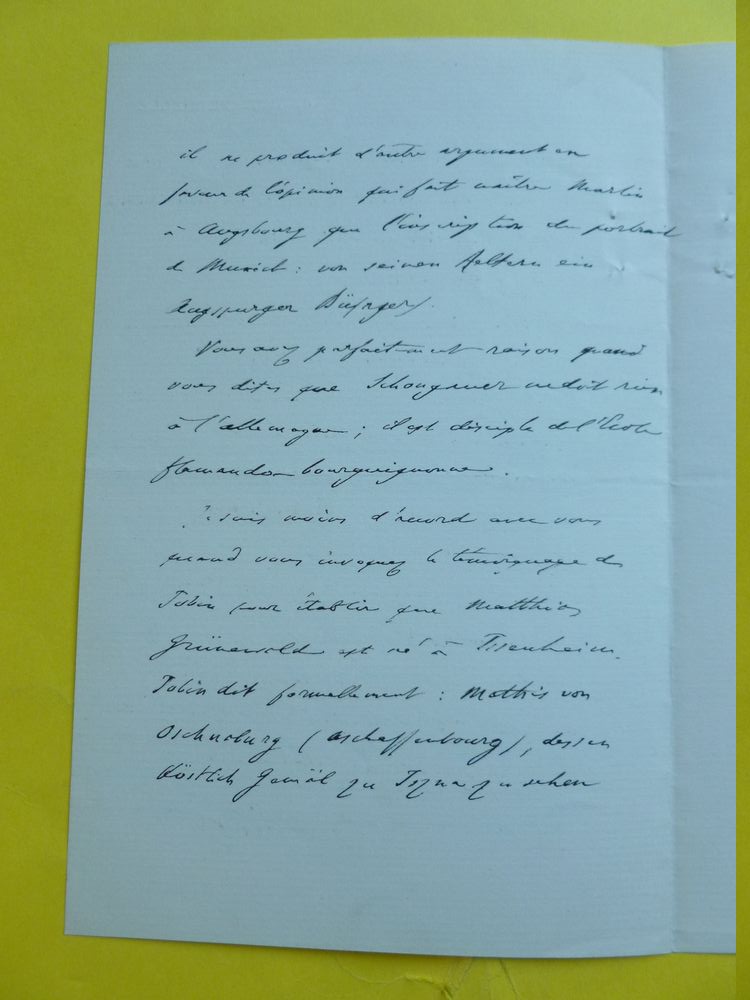 il ne produit d'autre argument en
faveur de l'opinion qui fait naître Martin
à Augsbourg que l'inscription du portrait
de Munich : von seinen Aeltern ein
Augspurger
Vous avez parfaitement raison quand
vous dites que Schongauer ne doit rien
à l'allemagne ; il est disciple de l'Ecole
flamando-bourguignonne.
Je suis moins d'accord avec vous
quand vous invoquez le témoignage de
Jobin pour établir que Matthias
Grünewald est né à Issenheim.
Jobin dit formellement : Mathis von
Oschnaburg (aschaffenbourg), dessen
köstlich Gemäl zu Iszna zu sehen